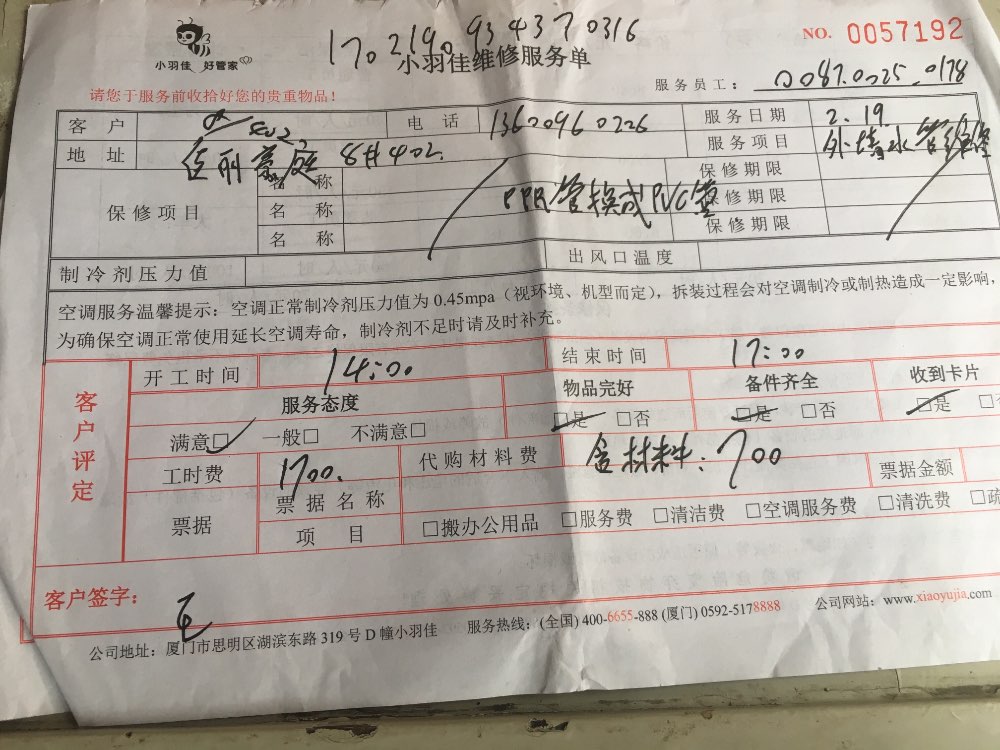 小羽佳 好管家
NO. 0057192
170219093437 0316
小羽佳维修服务单
请您于服务前收拾好您的贵重物品！
服务员工： 0087.0025.0178
客 户 电 话 13609960226 服务日期 2.19.
地 址 豪庭 8# 402. 服务项目 外墙水管维修
保修项目 名 称 保修期限
名 称 PPR管换成PVC管 保修期限
名 称 保修期限
制冷剂压力值 出风口温度
空调服务温馨提示：空调正常制冷剂压力值为 0.45mpa（视环境、机型而定），拆装过程会对空调制冷或制热造成一定影响，
为确保空调正常使用延长空调寿命，制冷剂不足时请及时补充。
客户评定
开工时间 14:00 结束时间 17:00
服务态度 物品完好 备件齐全 收到卡片
满意□ 一般□ 不满意□ □是 □否 □是 □否 □是
工时费 1700. 代购材料费 含材料：700 票据金额
票据 票据名称
项 目 □搬办公用品 □服务费 □清洁费 □空调服务费 □清洗费 □疏
客户签字：
公司地址：厦门市思明区湖滨东路 319 号 D 幢小羽佳 服务热线：(全国) 400-6655-888 (厦门) 0592-5178888 公司网站：www.xiaoyujia.com